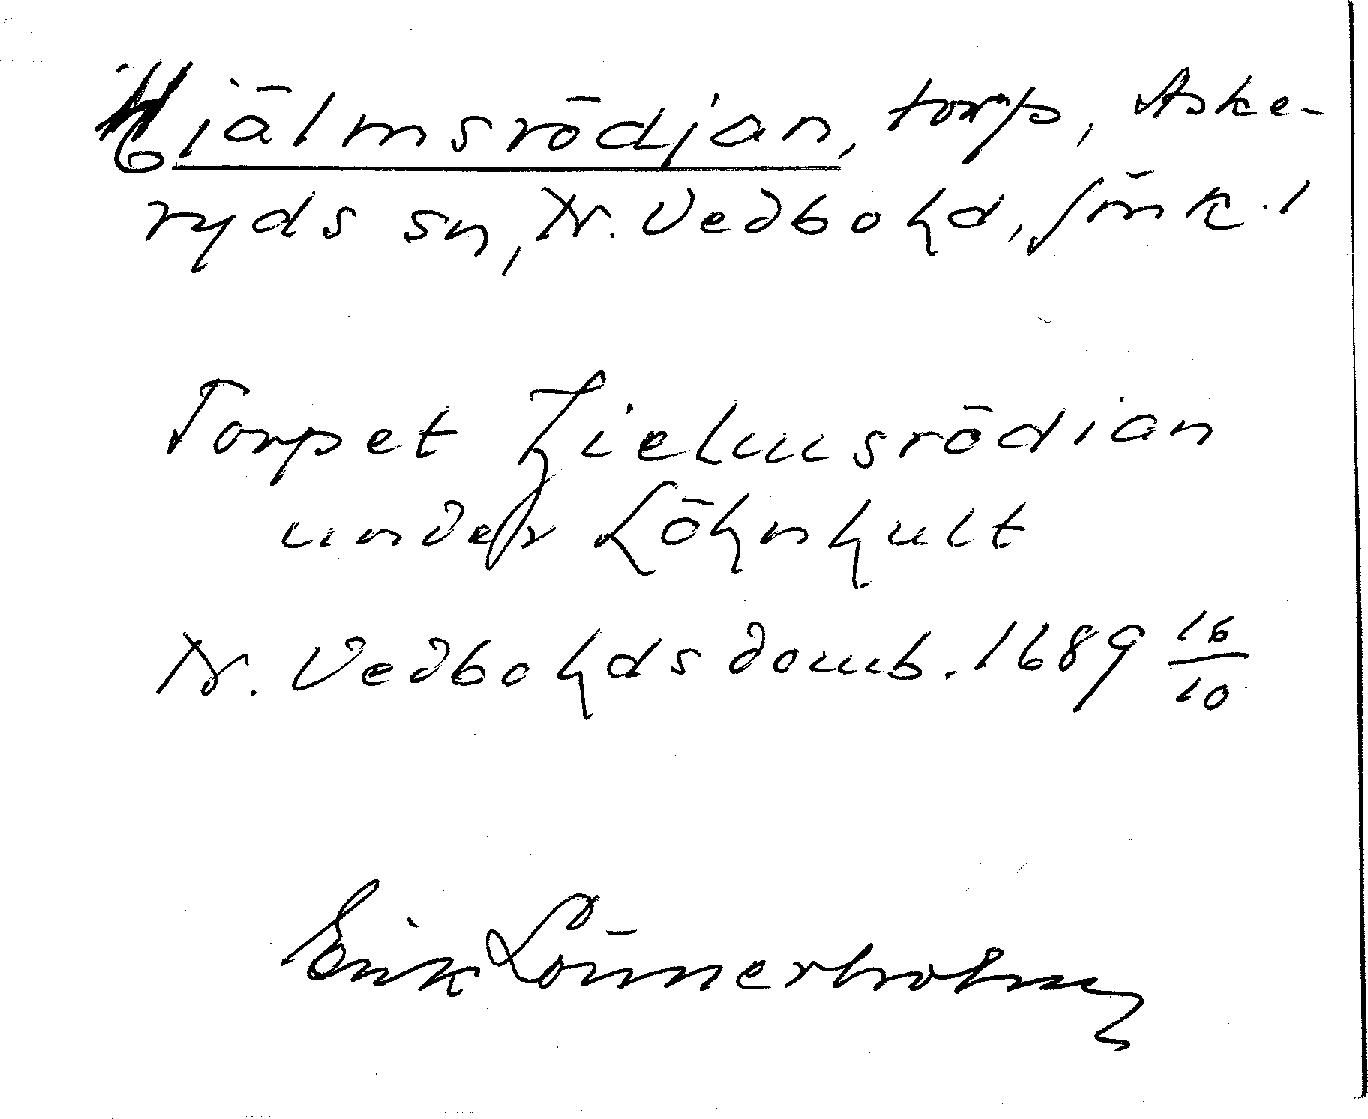 Hjälmsrödjan, torp, Aske-
ryds sn, N. Vedbohd, Jönk. l
Torpet Hielmsrödian
under Löhnhult
N. Vedbohds domb. 1689 16/10
Erik Lönnerholm